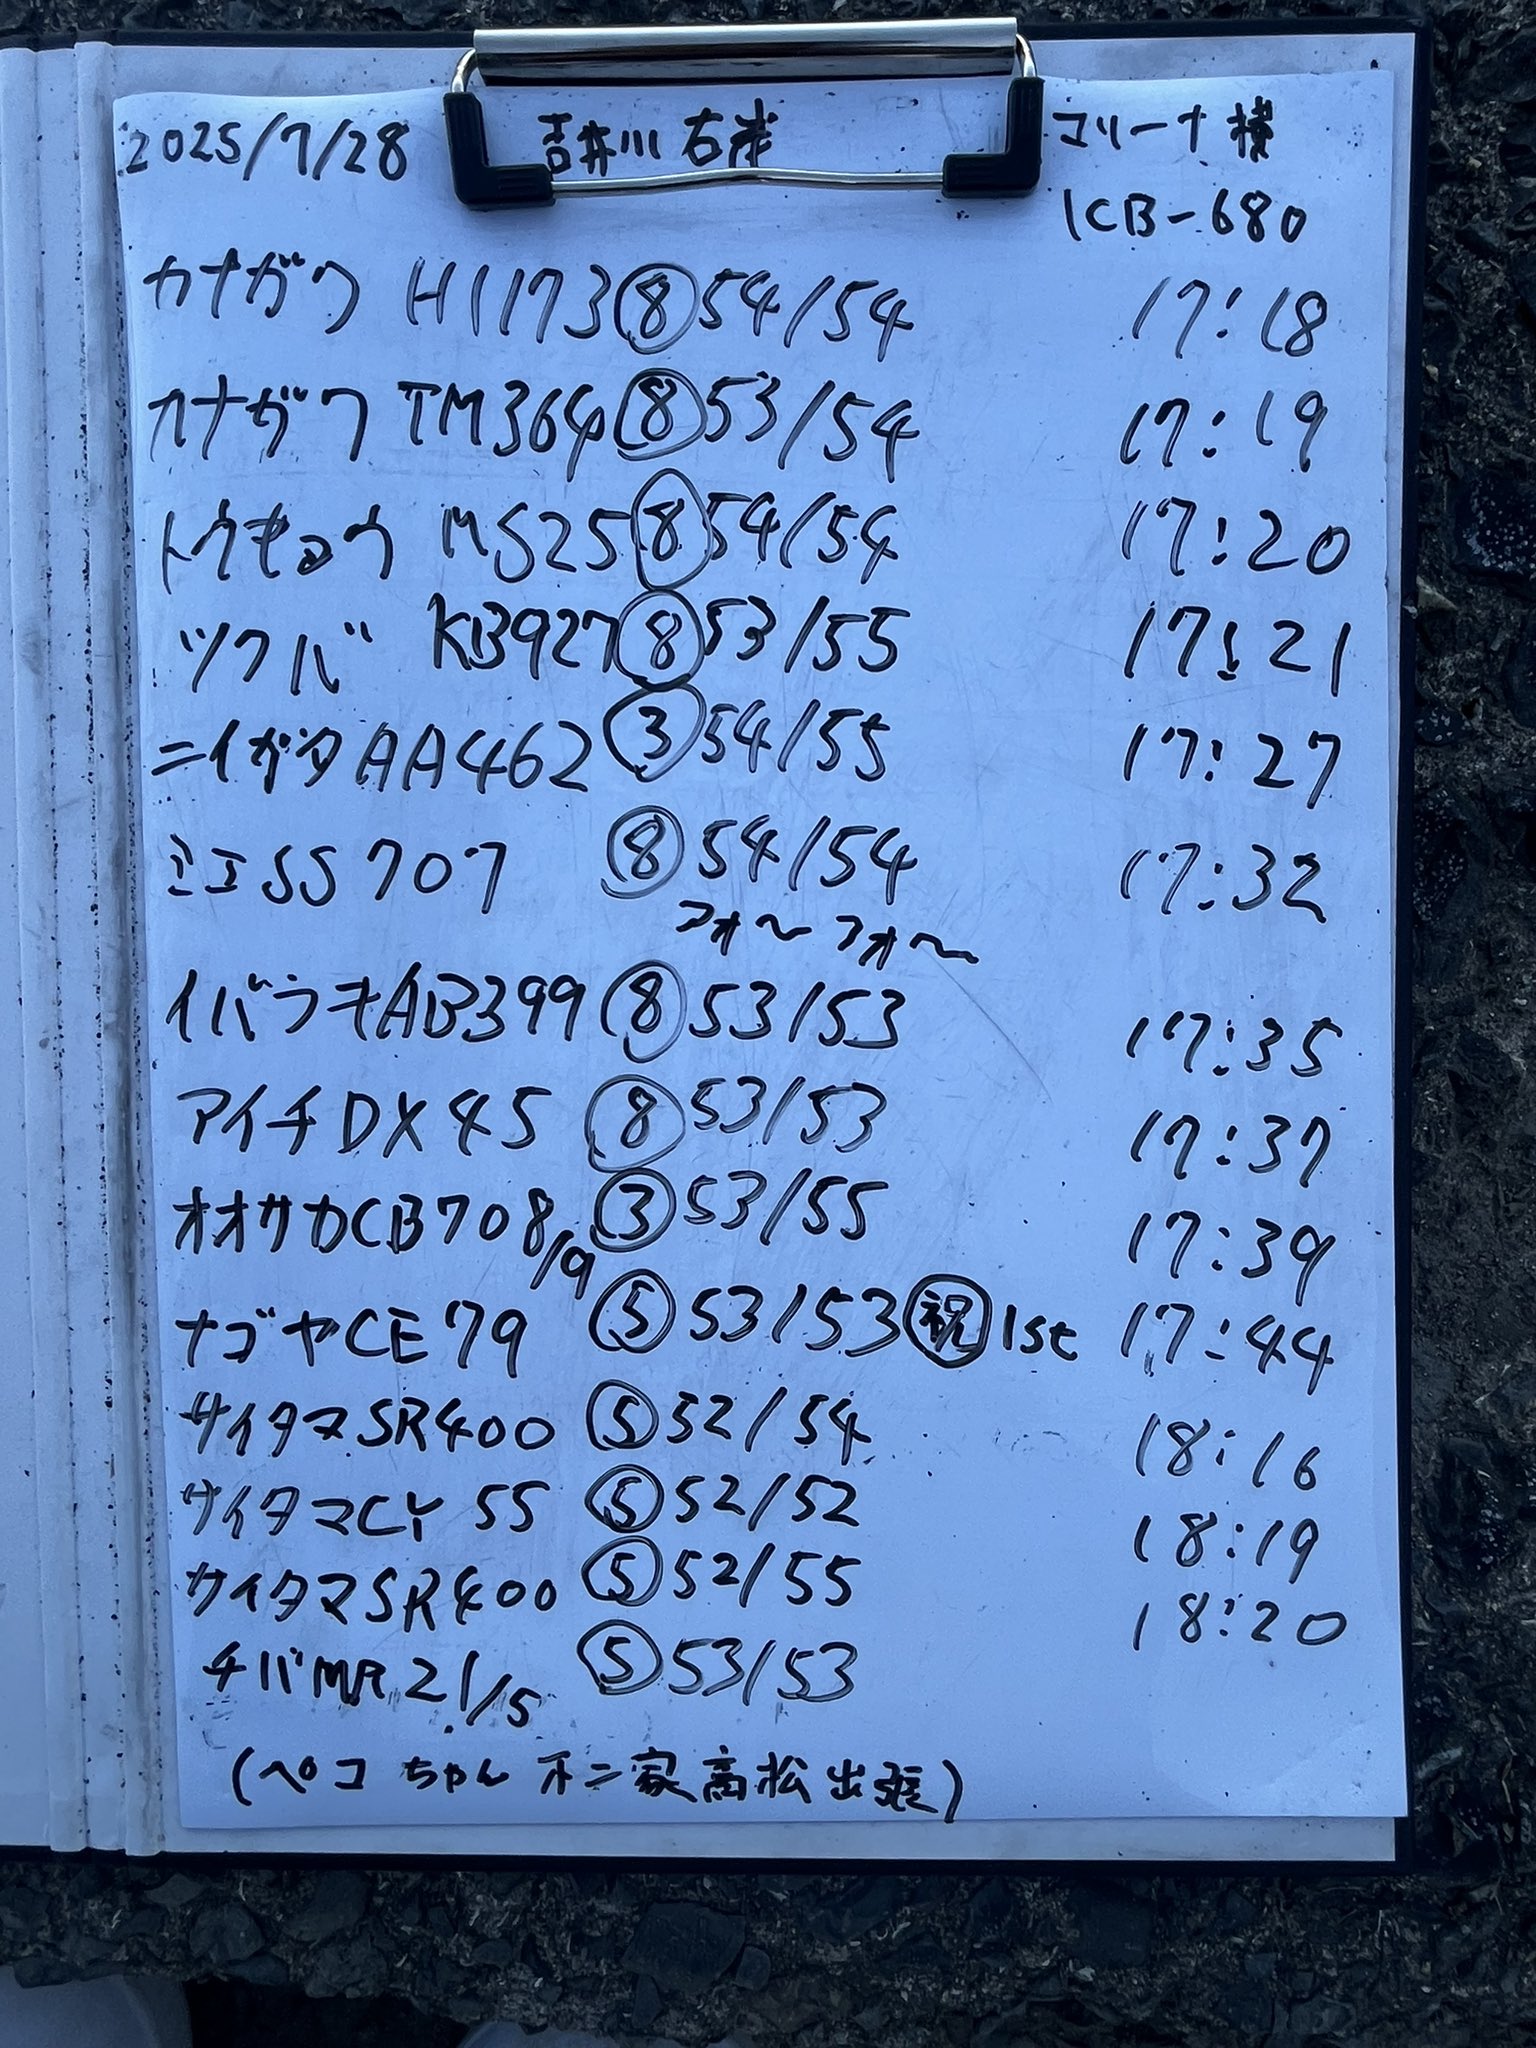 2025/7/28 吉井川 右岸 マリーナ横
ICB-680
カナガワ HI173 ⑧ 54/54 17:18
カナガワ TM364 ⑧ 53/54 17:19
トウキョウ MS25 ⑧ 54/54 17:20
ツクバ KB927 ⑧ 53/55 17:21
ニイガタAA462 ③ 54/55 17:27
ミエSS707 ⑧ 54/54 17:32
フォ〜フォ〜
イバラキAB399 ⑧ 53/53 17:35
アイチDX45 ⑧ 53/53 17:37
オオサカCB708/9 ③ 53/55 17:39
ナゴヤCE79 ⑤ 53/53 ㊗ 1st 17:44
サイタマSR400 ⑤ 52/54 18:16
サイタマCY55 ⑤ 52/52 18:19
サイタマSR400 ⑤ 52/55 18:20
チバMR21/5 ⑤ 53/53
(ペコちゃん 不二家高松出張)